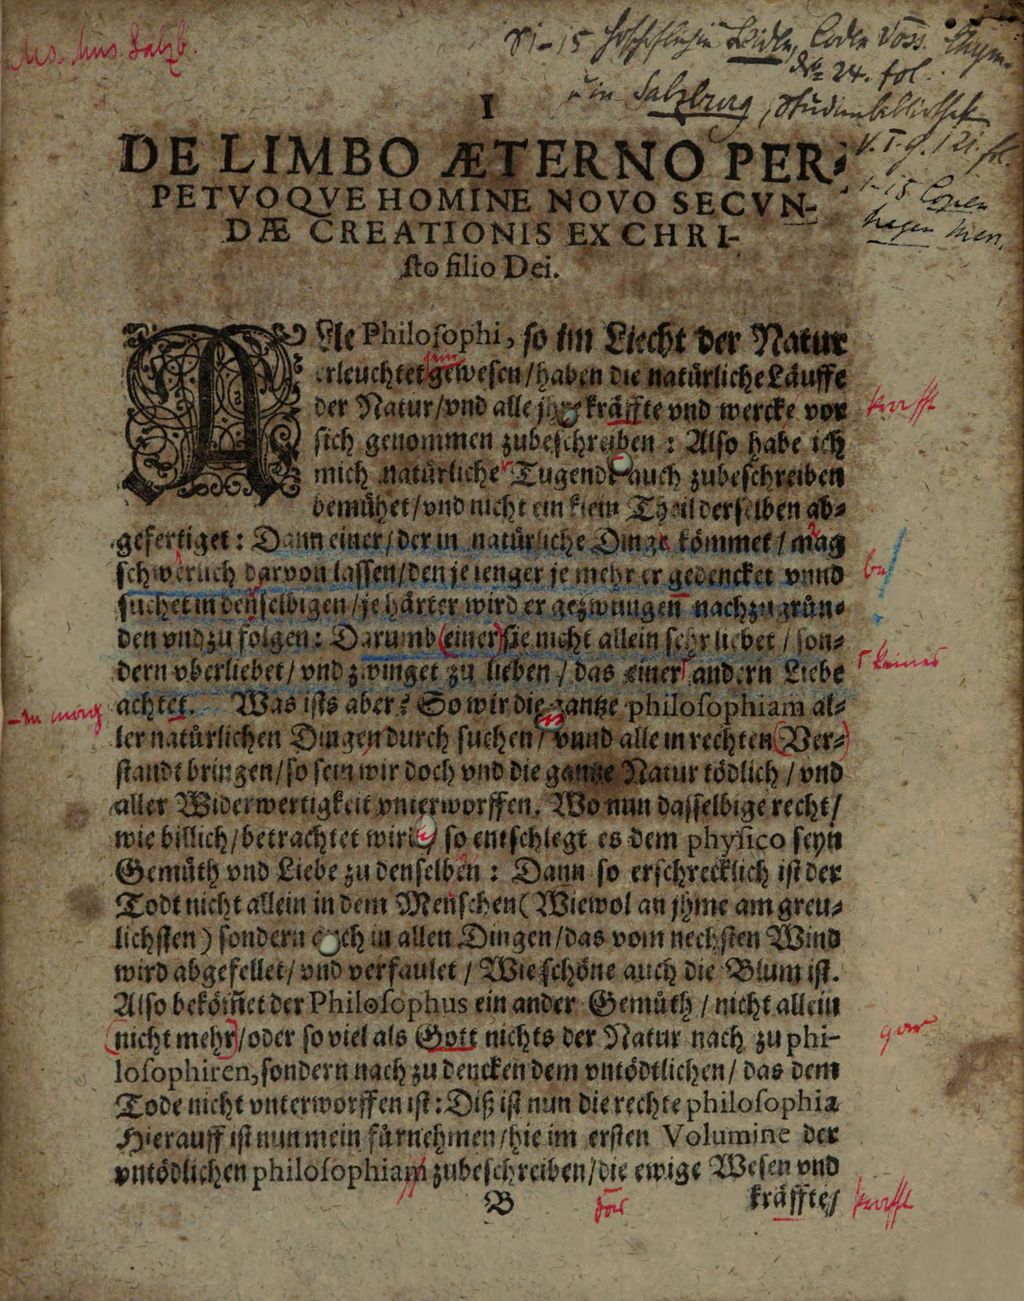 Ms. Mus. Salzb.
S1-15 Leidn, Codex Voss. Chym.
24. fol.
in Salzburg, Studienbibliothek
V. I. 9. 121. fol.
1-15 Copen
hagen
I
DE LIMBO ÆTERNO PER-
PETVOQVE HOMINE NOVO SECVN-
DÆ CREATIONIS EX CHRI-
ſto filio Dei.
ALle Philoſophi, ſo im Liecht der Natur
erleuchtet geweſen/haben die natuͤrliche Laͤuffe
der Natur/vnd alle jhre kraͤffte vnd wercke vor
krafft
ſich genommen zubeſchreiben : Alſo habe ich
mich natuͤrliche Tugendt auch zubeſchreiben
bemuͤhet/vnd nicht ein klein Theil derſelben ab-
gefertiget : Dann einer/der in natuͤrliche Dinge koͤmmet/mag
ſchwerlich darvon laſſen/den je lenger je mehr er gedencket vnnd
ſuchet in denſelbigen/je haͤrter wird er gezwungen nachzugruͤn-
den vnd zu folgen : Darumb einer ſie nicht allein ſehr liebet/ſon-
dern vberliebet/vnd zwinget zu lieben/das einer andern Liebe
keines
achtet. Was iſts aber? So wir die gantze philoſophiam al-
ler natuͤrlichen Dingen durch ſuchen/vnnd alle in rechten Ver-
ſtandt bringen/ſo ſein wir doch vnd die gantze Natur toͤdlich/vnd
aller Widerwertigkeit vnterworffen. Wo nun daſſelbige recht/
wie billich/betrachtet wird/ ſo entſchlegt es dem phyſico ſeyn
Gemuͤth vnd Liebe zu denſelben : Dann ſo erſchrecklich iſt der
Todt nicht allein in dem Menſchen(Wiewol an jhme am greu-
lichſten) ſondern auch in allen Dingen/das vom nechſten Wind
wird abgefellet/vnd verfaulet/Wie ſchoͤne auch die Blum iſt.
Alſo bekoͤm̃et der Philoſophus ein ander Gemuͤth/nicht allein
nicht mehr/oder ſo viel als Gott nichts der Natur nach zu phi-
gar
loſophiren, ſondern nach zu dencken dem vntoͤdtlichen/das dem
Tode nicht vnterworffen iſt : Diß iſt nun die rechte philoſophia
Hierauff iſt nun mein fuͤrnehmen/hie im erſten Volumine der
vntoͤdlichen philoſophiam zubeſchreiben/die ewige Weſen vnd
B
kraͤffte/
krafft